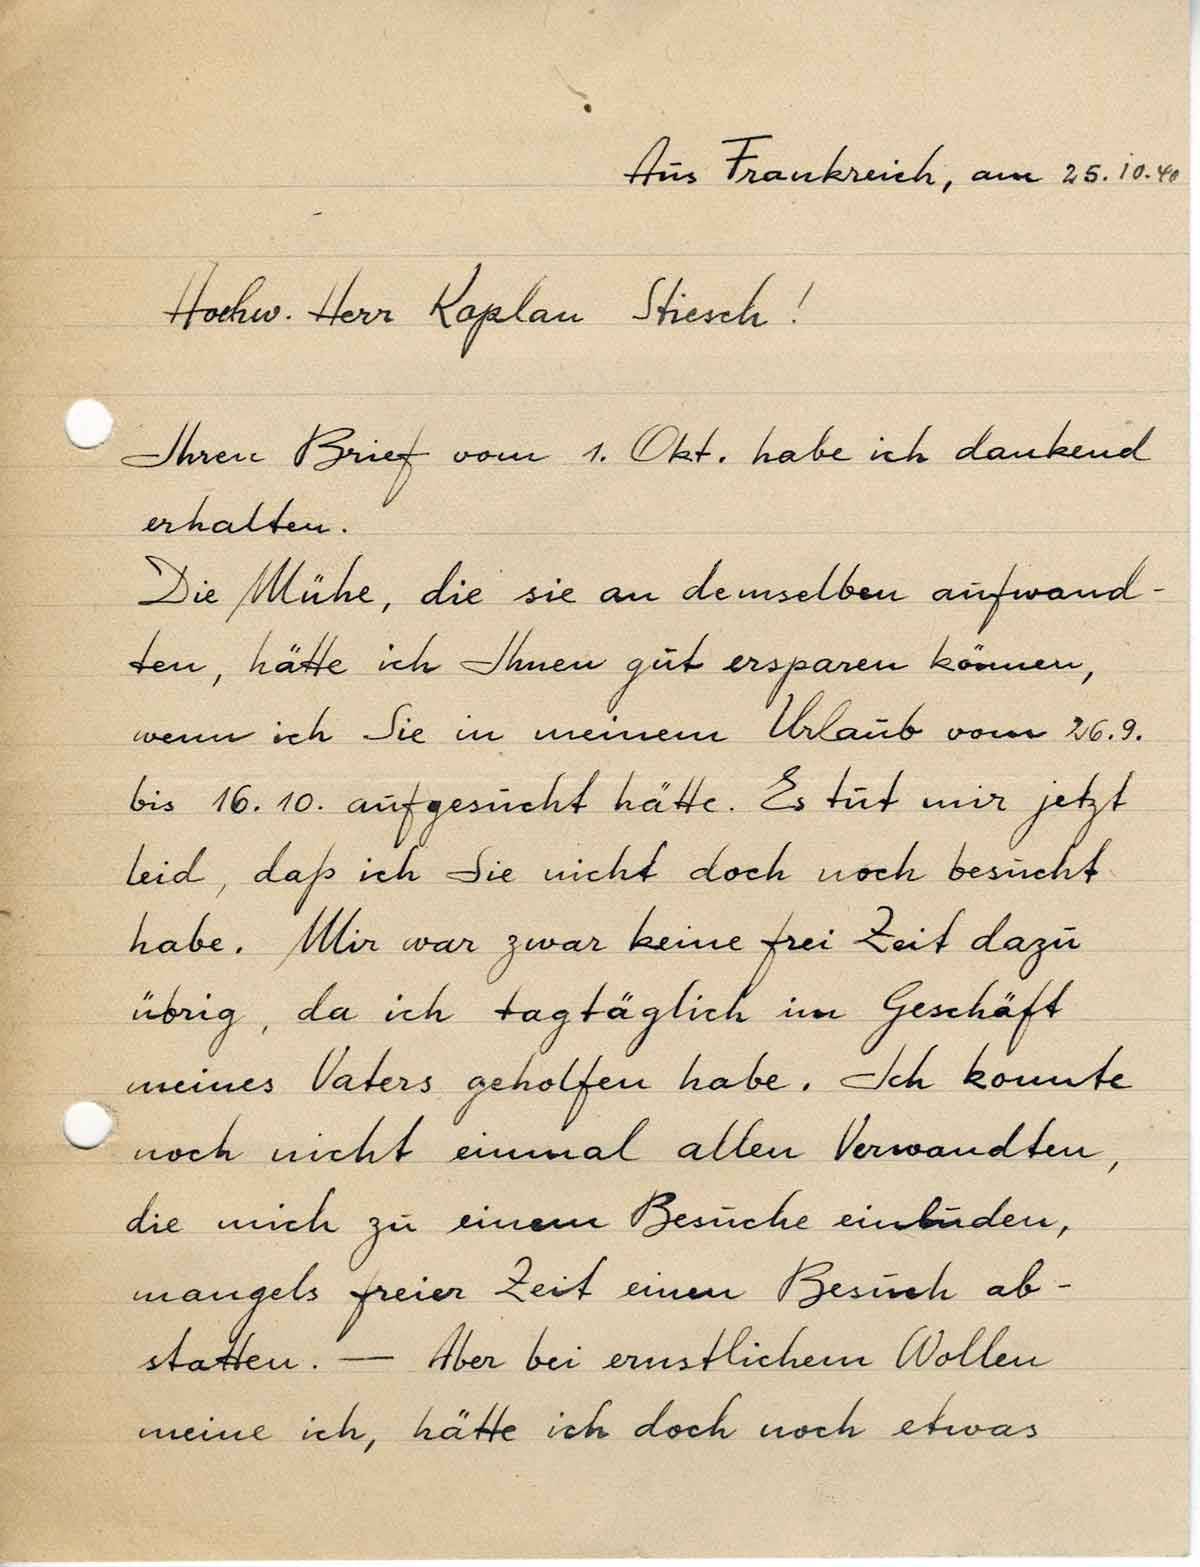 Aus Frankreich, am 25.10.40
Hochw. Herr Kaplan Stiesch!
Ihren Brief vom 1. Okt. habe ich dankend
erhalten.
Die Mühe, die sie an demselben aufwand-
ten, hätte ich Ihnen gut ersparen können,
wenn ich Sie in meinem Urlaub vom 26.9.
bis 16.10. aufgesucht hätte. Es tut mir jetzt
leid, daß ich Sie nicht doch noch besucht
habe. Mir war zwar keine frei Zeit dazu
übrig, da ich tagtäglich im Geschäft
meines Vaters geholfen habe. Ich konnte
noch nicht einmal allen Verwandten,
die mich zu einem Besuche einluden,
mangels freier Zeit einen Besuch ab-
statten. — Aber bei ernstlichem Wollen
meine ich, hätte ich doch noch etwas